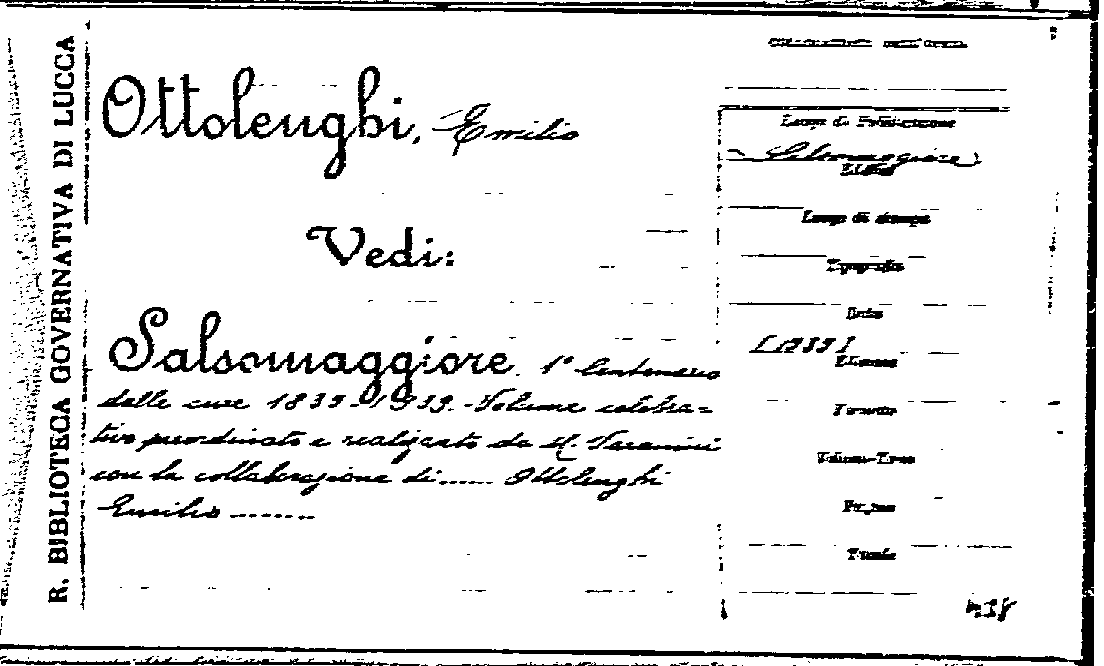 R. BIBLIOTECA GOVERNATIVA DI LUCCA
Ottolenghi, Emilio
Vedi:
Salsomaggiore. 1° Centenario
delle cure 1839-1939. Volume celebra=
tivo preordinato e realizzato da M.
con la collaborazione di...... Ottolenghi
Emilio ........
Luogo di Pubblicazione
Salsomaggiore
Editore
Luogo di stampa
Tipografia
Data
[1939]
Edizione
Formato
Volumi-Tomo
Pagine
Tavole